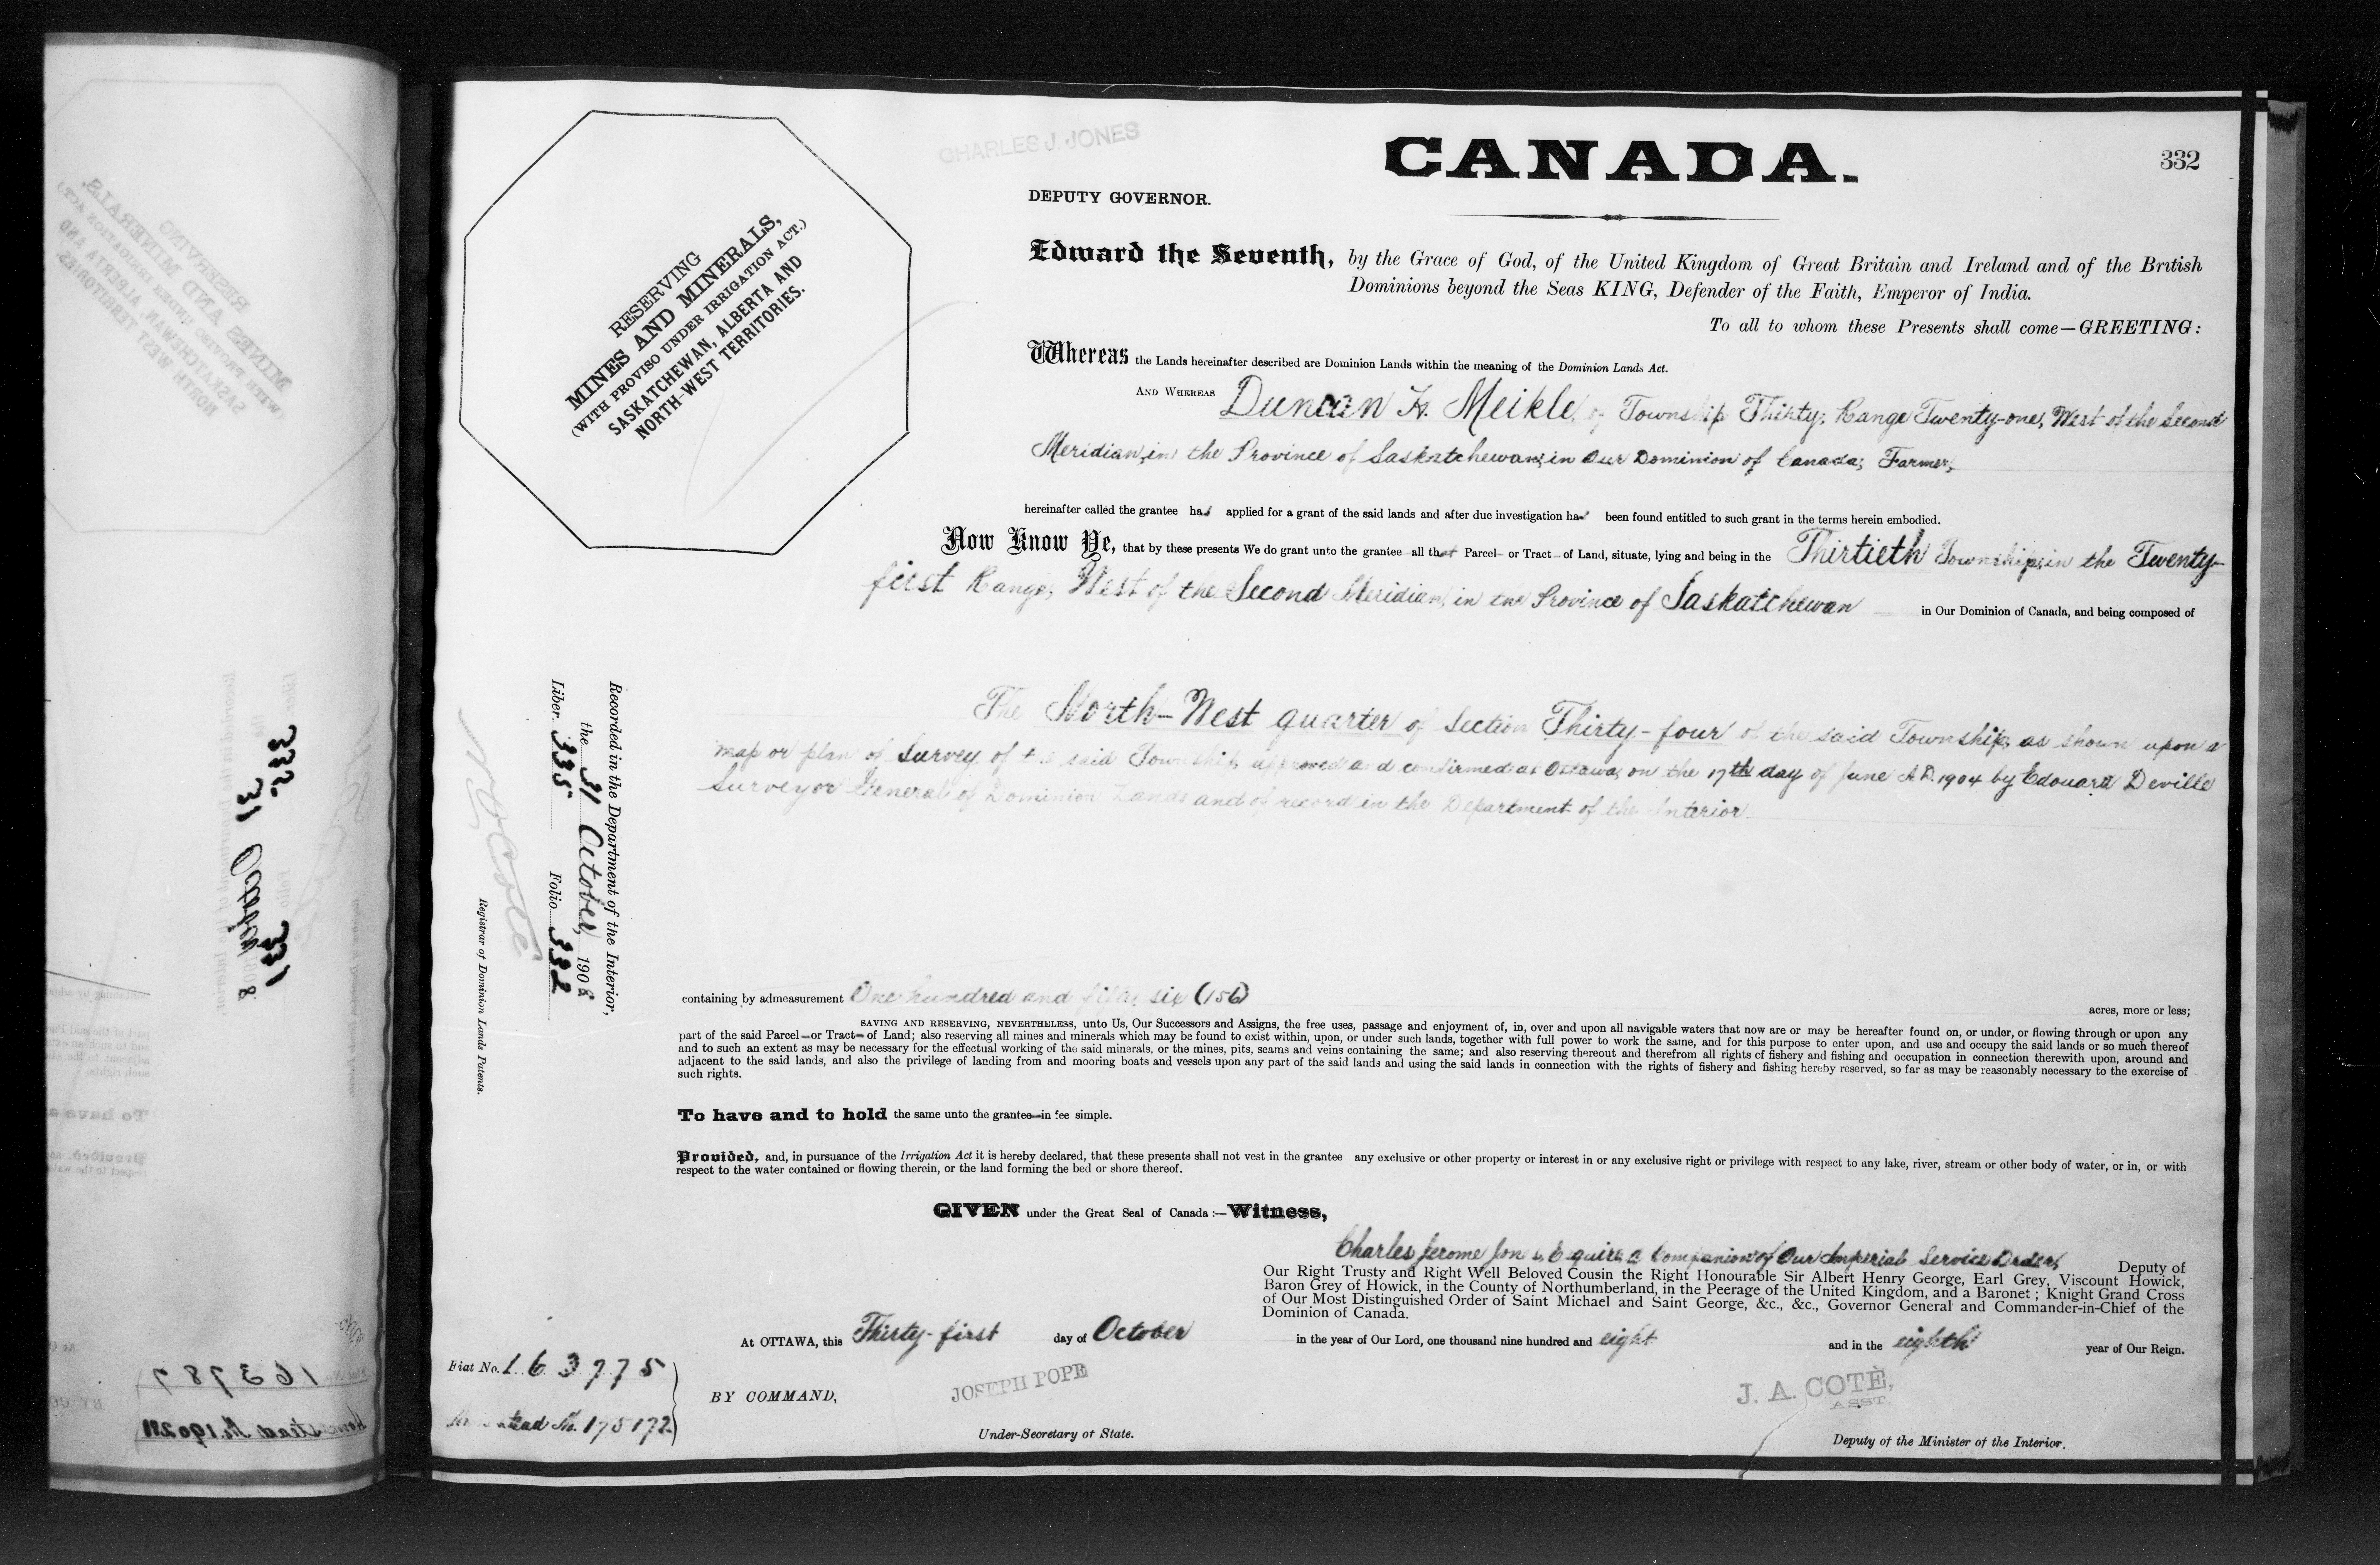 CHARLES J. JONES
CANADA.
332
DEPUTY GOVERNOR.
RESERVING
MINES AND MINERALS,
(WITH PROVISO UNDER IRRIGATION ACT.)
SASKATCHEWAN, ALBERTA AND
NORTH-WEST TERRITORIES.
Edward the Seventh, by the Grace of God, of the United Kingdom of Great Britain and Ireland and of the British
Dominions beyond the Seas KING, Defender of the Faith, Emperor of India.
To all to whom these Presents shall come—GREETING:
Whereas the Lands hereinafter described are Dominion Lands within the meaning of the Dominion Lands Act.
AND WHEREAS Duncan H. Meikle, of Township Thirty, Range Twenty-one, West of the Second
Meridian, in the Province of Saskatchewan, in Our Dominion of Canada, Farmer,
hereinafter called the grantee has applied for a grant of the said lands and after due investigation has been found entitled to such grant in the terms herein embodied.
Now Know Ye, that by these presents We do grant unto the grantee all that Parcel or Tract of Land, situate, lying and being in the Thirtieth Township, in the Twenty-
first Range, West of the Second Meridian, in the Province of Saskatchewan in Our Dominion of Canada, and being composed of
The North-West quarter of Section Thirty-four of the said Township, as shown upon a
map or plan of Survey of the said Township, approved and confirmed at Ottawa, on the 17th day of June A.D. 1904 by Edouard Deville
Surveyor General of Dominion Lands and of record in the Department of the Interior.
Recorded in the Department of the Interior,
the 31 October, 1908
Liber 335 Folio 332
N. O. Coté
Registrar of Dominion Lands Patents.
containing by admeasurement One hundred and fifty six (156) acres, more or less;
SAVING AND RESERVING, NEVERTHELESS, unto Us, Our Successors and Assigns, the free uses, passage and enjoyment of, in, over and upon all navigable waters that now are or may be hereafter found on, or under, or flowing through or upon any
part of the said Parcel or Tract of Land; also reserving all mines and minerals which may be found to exist within, upon, or under such lands, together with full power to work the same, and for this purpose to enter upon, and use and occupy the said lands or so much thereof
and to such an extent as may be necessary for the effectual working of the said minerals, or the mines, pits, seams and veins containing the same; and also reserving thereout and therefrom all rights of fishery and fishing and occupation in connection therewith upon, around and
adjacent to the said lands, and also the privilege of landing from and mooring boats and vessels upon any part of the said lands and using the said lands in connection with the rights of fishery and fishing hereby reserved, so far as may be reasonably necessary to the exercise of
such rights.
To have and to hold the same unto the grantee in fee simple.
Provided, and, in pursuance of the Irrigation Act it is hereby declared, that these presents shall not vest in the grantee any exclusive or other property or interest in or any exclusive right or privilege with respect to any lake, river, stream or other body of water, or in, or with
respect to the water contained or flowing therein, or the land forming the bed or shore thereof.
GIVEN under the Great Seal of Canada:—Witness,
Charles Jerome Jones, Esquire, a Companion of Our Imperial Service Order, Deputy of
Our Right Trusty and Right Well Beloved Cousin the Right Honourable Sir Albert Henry George, Earl Grey, Viscount Howick,
Baron Grey of Howick, in the County of Northumberland, in the Peerage of the United Kingdom, and a Baronet; Knight Grand Cross
of Our Most Distinguished Order of Saint Michael and Saint George, &c., &c., Governor General and Commander-in-Chief of the
Dominion of Canada.
At OTTAWA, this Thirty-first day of October in the year of Our Lord, one thousand nine hundred and eight and in the eighth year of Our Reign.
Fiat No. 163775
Homestead No. 175172
BY COMMAND,
JOSEPH POPE
Under-Secretary of State.
J. A. COTÉ,
ASST.
Deputy of the Minister of the Interior.